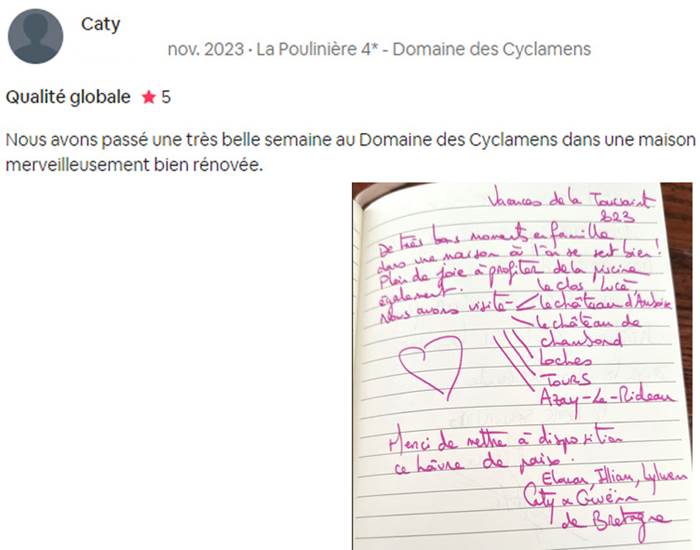 Caty
nov. 2023 · La Poulinière 4* - Domaine des Cyclamens
Qualité globale ★ 5
Nous avons passé une très belle semaine au Domaine des Cyclamens dans une maison
merveilleusement bien rénovée.
Vacances de la Toussaint
2023
De très bons moments en famille
dans une maison à l'on se sent bien !
Plein de joie à profiter de la piscine
également.
le clos Lucé
Nous avons visité le château d'Amboise
le château de
Loches
Tours
Azay-Le-Rideau
Merci de mettre à disposition
ce hâvre de paix.
Caty & Gwënn
de Bretagne